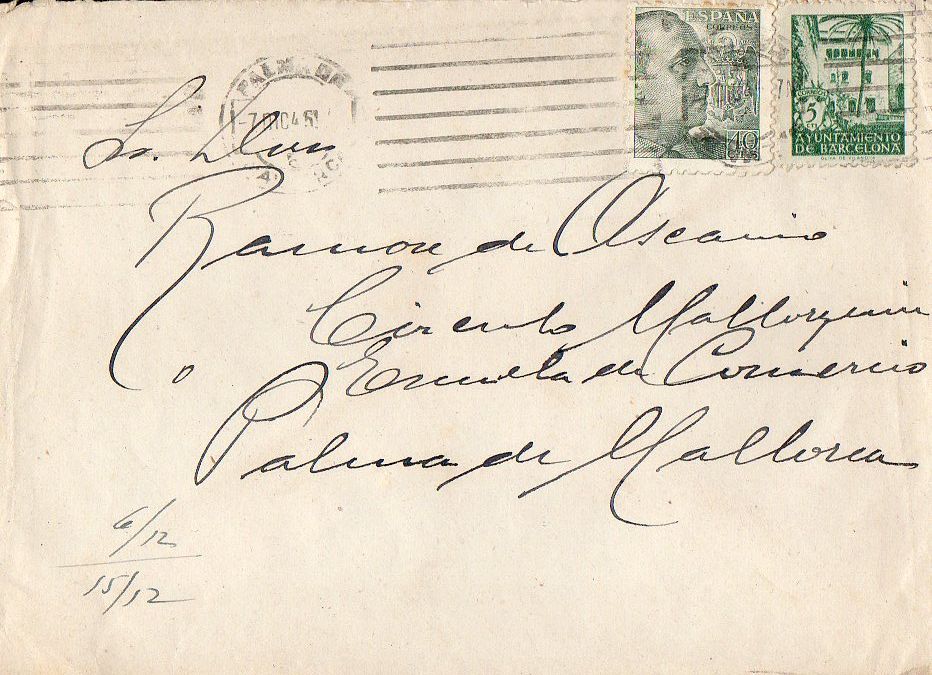 ESPAÑA
CORREOS
40
CTS
5
AYUNTAMIENTO
DE BARCELONA
PALMA DE
-7 DIC 45
Sr. Don
Ramon de Ascanio
Circulo Mallorquin
o Escuela de Comercio
Palma de Mallorca
6/12
15/12